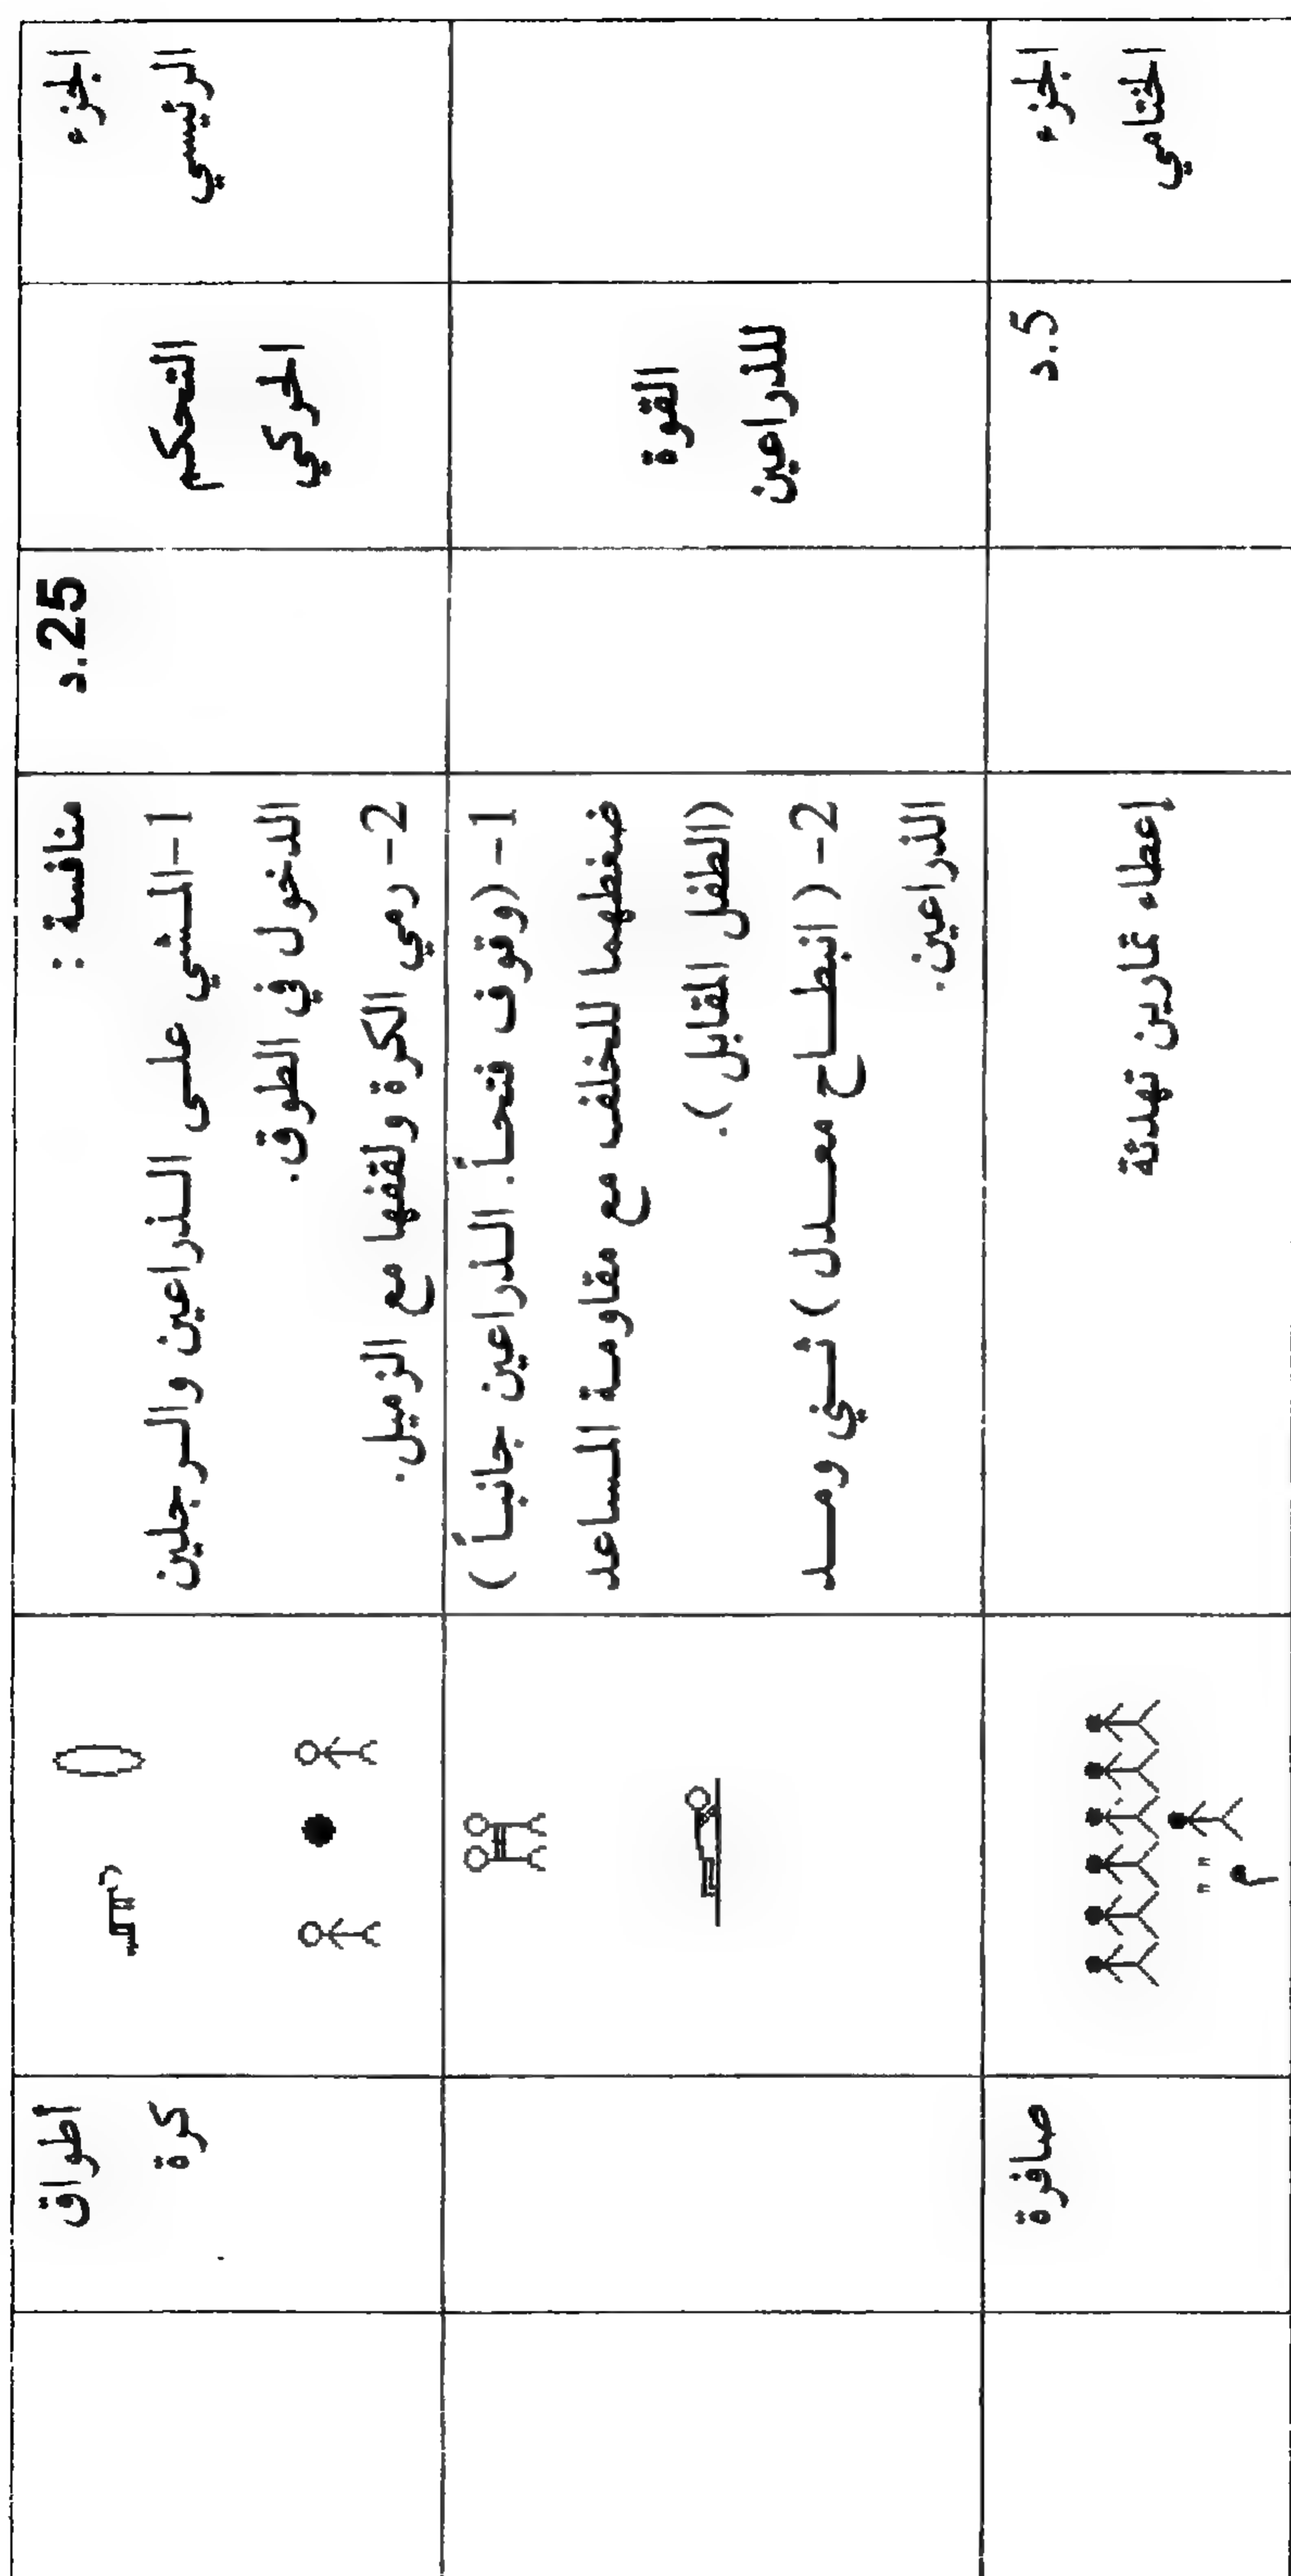 الجزء
الرئيسي
التحكم
الحركي
25.د
منافسة :
1-المشي على الذراعين والرجلين
الدخول في الطوق.
2- رمي الكرة ولقفها مع الزميل.
أطواق
كرة
القوة
للذراعين
1- (وقوف فتحاً. الذراعين جانباً )
ضغطهما للخلف مع مقاومة المساعد
(الطفل المقابل ).
2- ( انبطاح معدل ) ثني ومد
الذراعين.
الجزء
الختامي
5.د
إعطاء تمارين تهدئة
" "
م
صافرة